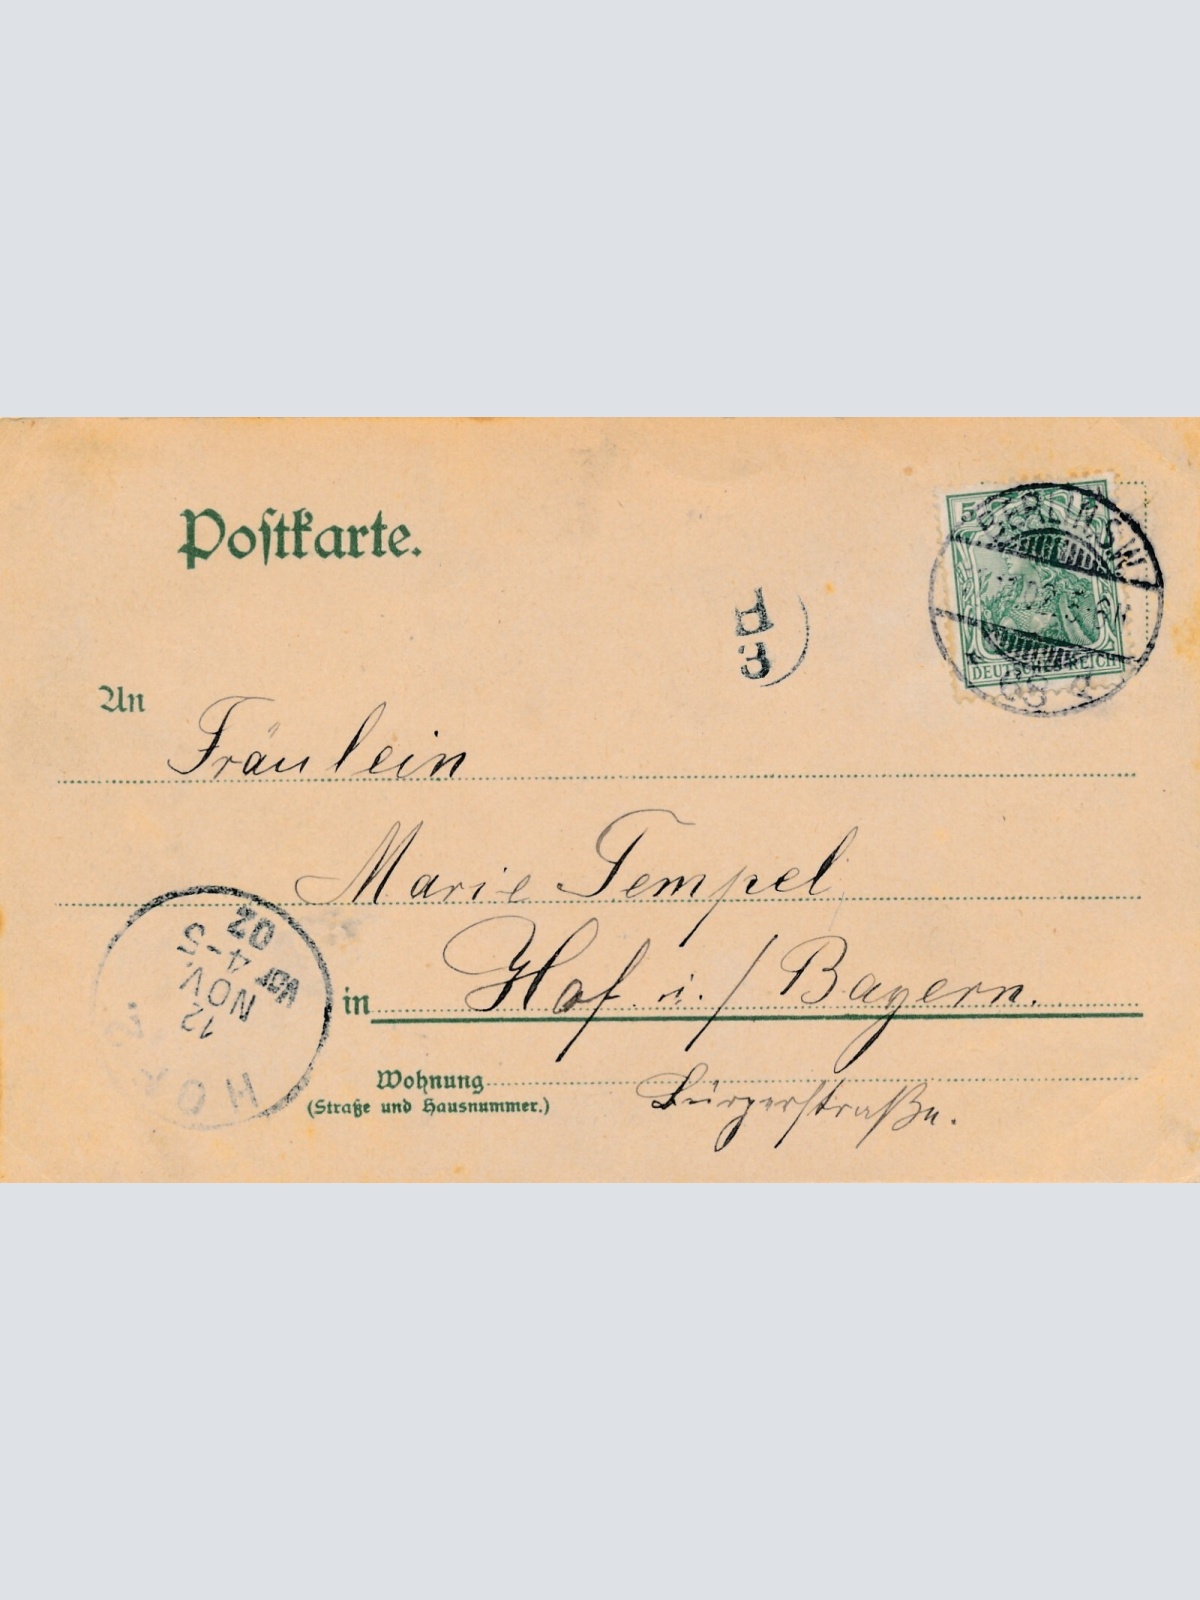 Postkarte.
5
BERLIN S.W.
DEUTSCHES REICH
An
Fräulein
Marie Tempel
in Hof i./Bayern.
Wohnung
(Straße und Hausnummer.)
Bürgerstraße.
HOF
12
NOV.
4-5
02